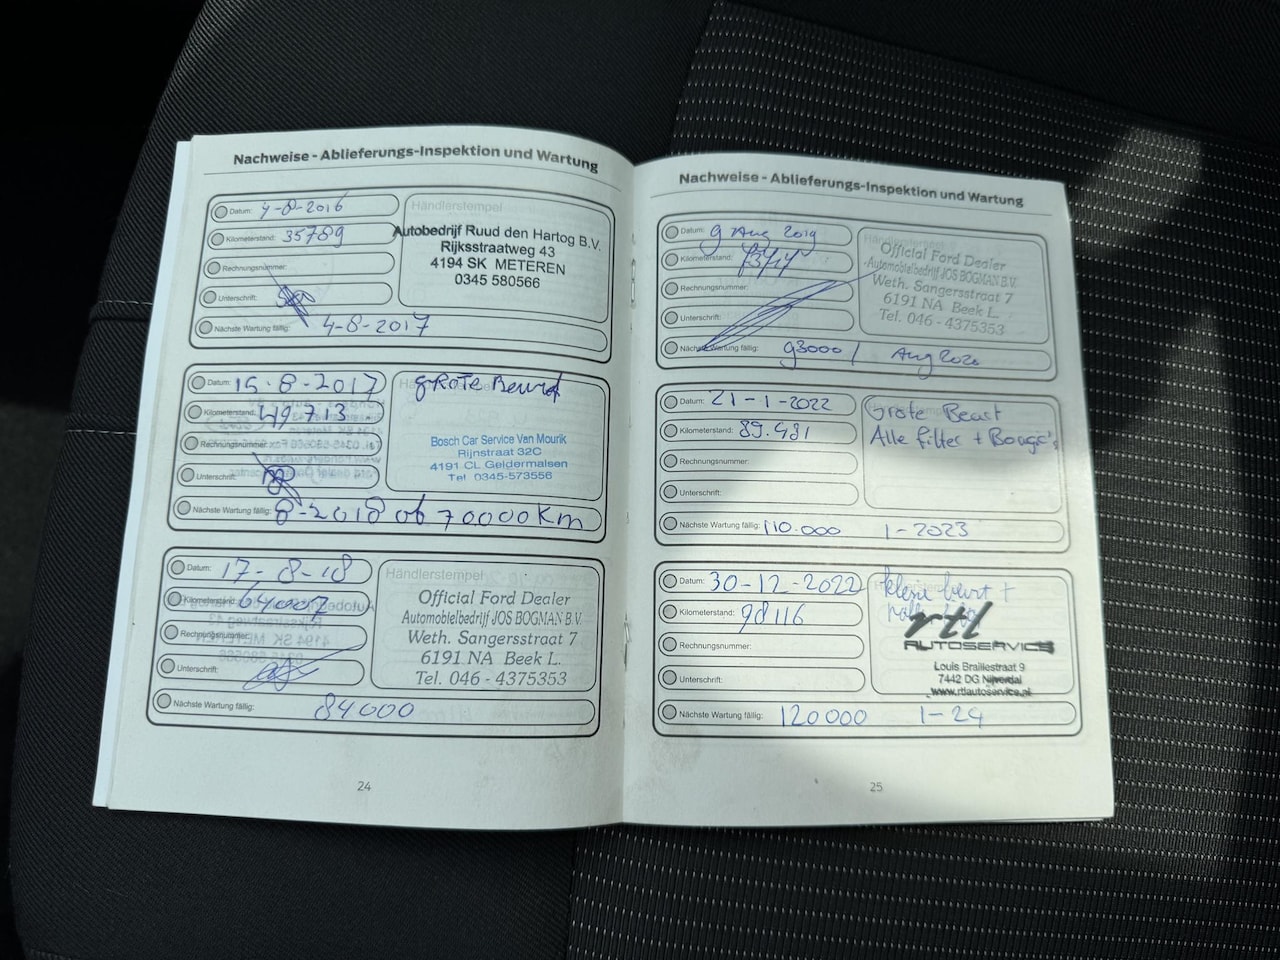 Nachweise - Ablieferungs-Inspektion und Wartung
Datum: 4-8-2016
Kilometerstand: 35789
Rechnungsnummer:
Unterschrift:
Nächste Wartung fällig: 4-8-2017
Händlerstempel
Autobedrijf Ruud den Hartog B.V.
Rijksstraatweg 43
4194 SK METEREN
0345 580566
Datum: 15-8-2017
Kilometerstand: 49713
Rechnungsnummer:
Unterschrift:
Nächste Wartung fällig: 8-2018 ob 70000 Km
GROTE Beurt
Bosch Car Service Van Mourik
Rijnstraat 32C
4191 CL Geldermalsen
Tel 0345-573556
Datum: 17-8-18
Kilometerstand: 64007
Rechnungsnummer:
Unterschrift:
Nächste Wartung fällig: 84000
Händlerstempel
Official Ford Dealer
Automobielbedrijf JOS BOGMAN B.V.
Weth. Sangersstraat 7
6191 NA Beek L.
Tel. 046 - 4375353
24
Nachweise - Ablieferungs-Inspektion und Wartung
Datum: 9 Aug 2019
Kilometerstand:
Rechnungsnummer:
Unterschrift:
Nächste Wartung fällig: 93000 / Aug 2020
Official Ford Dealer
Automobielbedrijf JOS BOGMAN B.V.
Weth. Sangersstraat 7
6191 NA Beek L.
Tel. 046 - 4375353
Datum: 21-1-2022
Kilometerstand: 89.481
Rechnungsnummer:
Unterschrift:
Nächste Wartung fällig: 110.000 1-2023
Grote Beurt
Alle filter + Bougc's
Datum: 30-12-2022
Kilometerstand: 98116
Rechnungsnummer:
Unterschrift:
Nächste Wartung fällig: 120000 1-24
kleine beurt +
rtl
AUTOSERVICE
Louis Braillestraat 9
7442 DG Nijverdal
www.rtlautoservice.nl
25